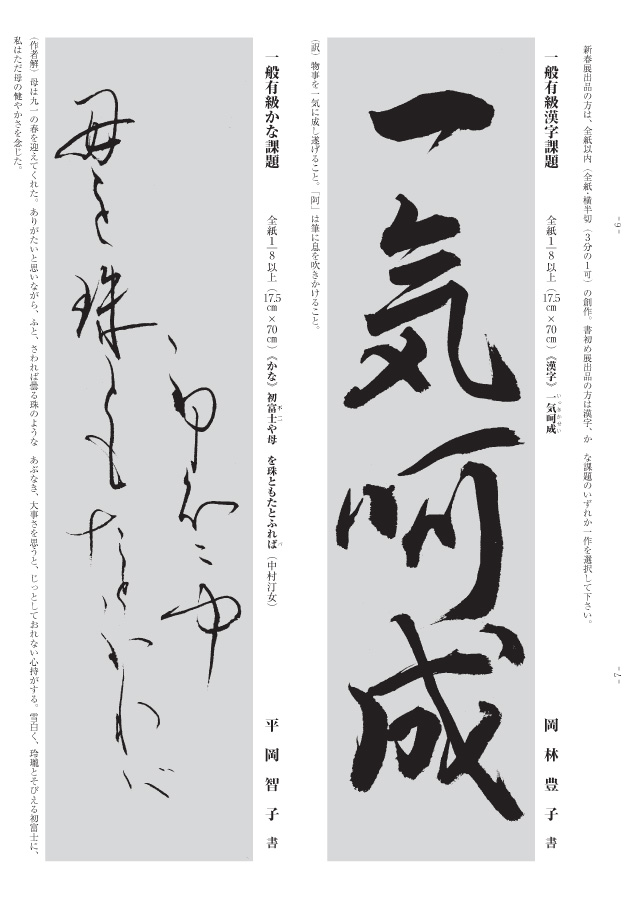 新春展出品の方は、全紙以内（全紙・横半切（３分の１可）の創作。書初め展出品の方は漢字、かな課題のいずれか一作を選択して下さい。
- 6 -
- 7 -
一般有級漢字課題　全紙1/8以上（17.5㎝×70㎝）《漢字》一気呵成　岡林豊子書
いっきかせい
一気呵成
（訳）物事を一気に成し遂げること。「阿」は筆に息を吹きかけること。
一般有級かな課題　全紙1/8以上（17.5㎝×70㎝）《かな》初富士や母を珠ともたとふれば（中村汀女）　平岡智子書
（作者解）母は九一の春を迎えてくれた。ありがたいと思いながら、ふと、さわれば曇る珠のような　あぶなき、大事さを思うと、じっとしておれない心持がする。雪白く、玲瓏とそびえる初富士に、
私はただ母の健やかさを念じた。